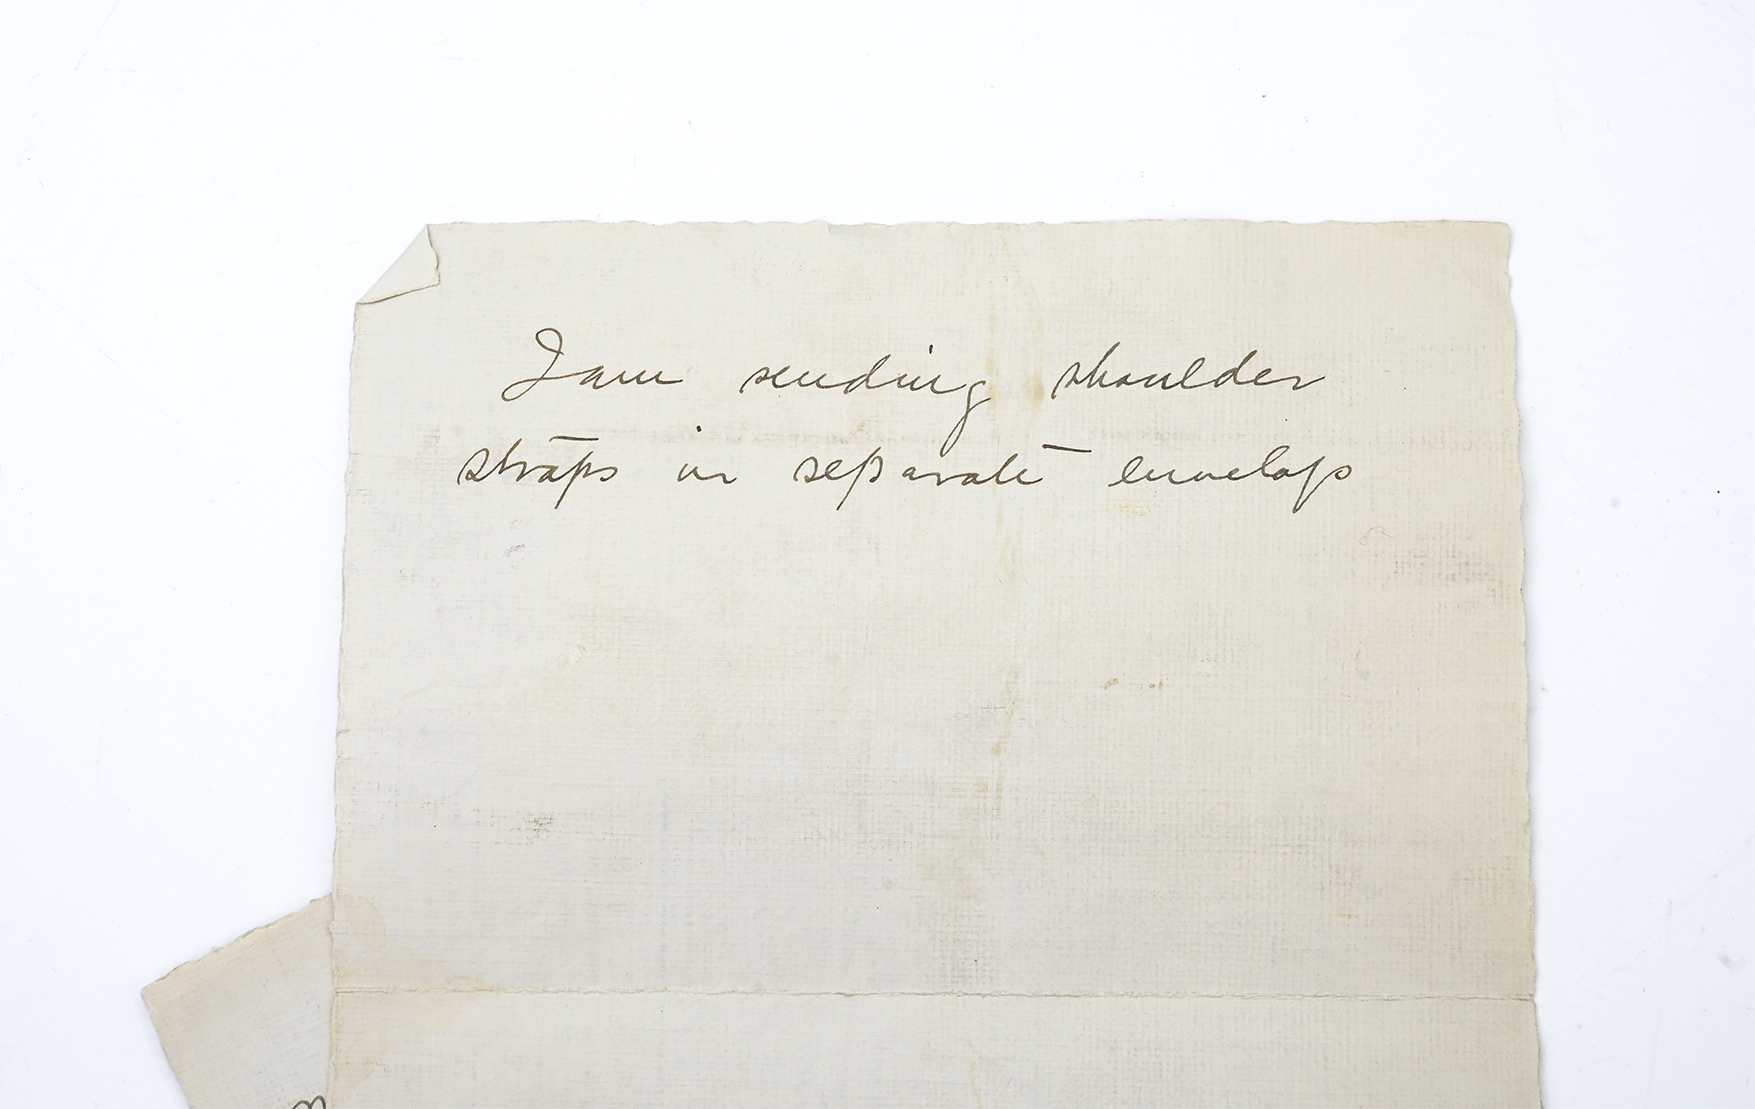 I am sending shoulder
straps in separate envelop